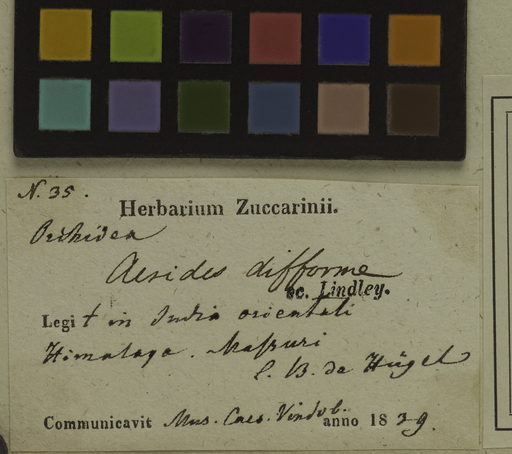 N. 35.
Herbarium Zuccarinii.
Orchidea
Aerides difforme
sc. Lindley.
Legit in India orientali
Himalaya. Maßuri
C. B. de Hügel
Communicavit Mus. Caes. Vindob. anno 1839.